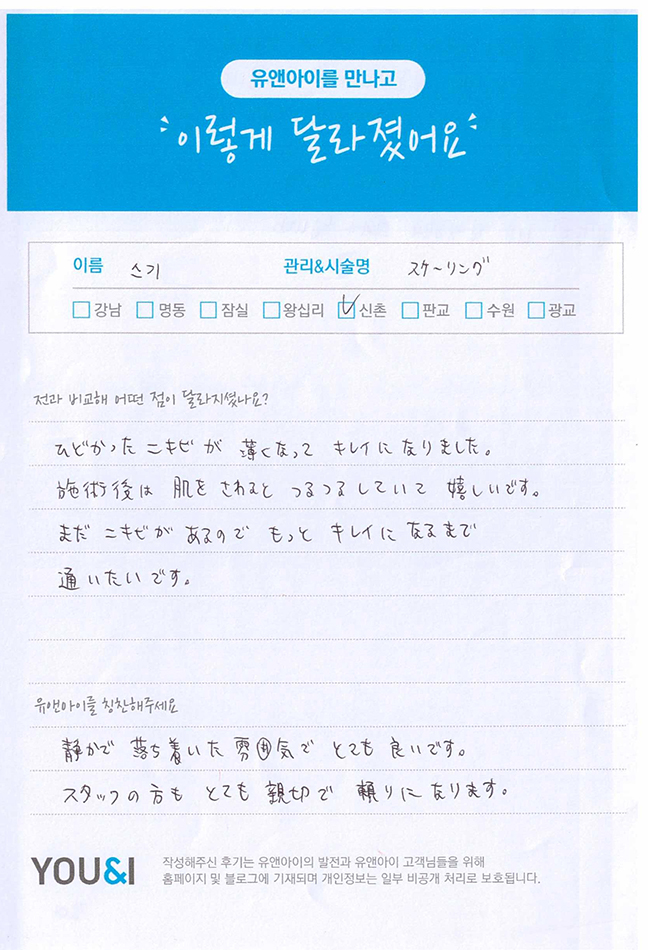 유앤아이를 만나고
이렇게 달라졌어요
이름 스기 관리&시술명 スケーリング
강남 명동 잠실 왕십리 신촌 판교 수원 광교
전과 비교해 어떤 점이 달라지셨나요?
ひどかったニキビが薄くなってキレイになりました。
施術後は肌をさわるとつるつるしていて嬉しいです。
まだニキビがあるのでもっとキレイになるまで
通いたいです。
유앤아이를 칭찬해주세요
静かで落ち着いた雰囲気でとても良いです。
スタッフの方もとても親切で頼りになります。
YOU&I
작성해주신 후기는 유앤아이의 발전과 유앤아이 고객님들을 위해
홈페이지 및 블로그에 기재되며 개인정보는 일부 비공개 처리로 보호됩니다.